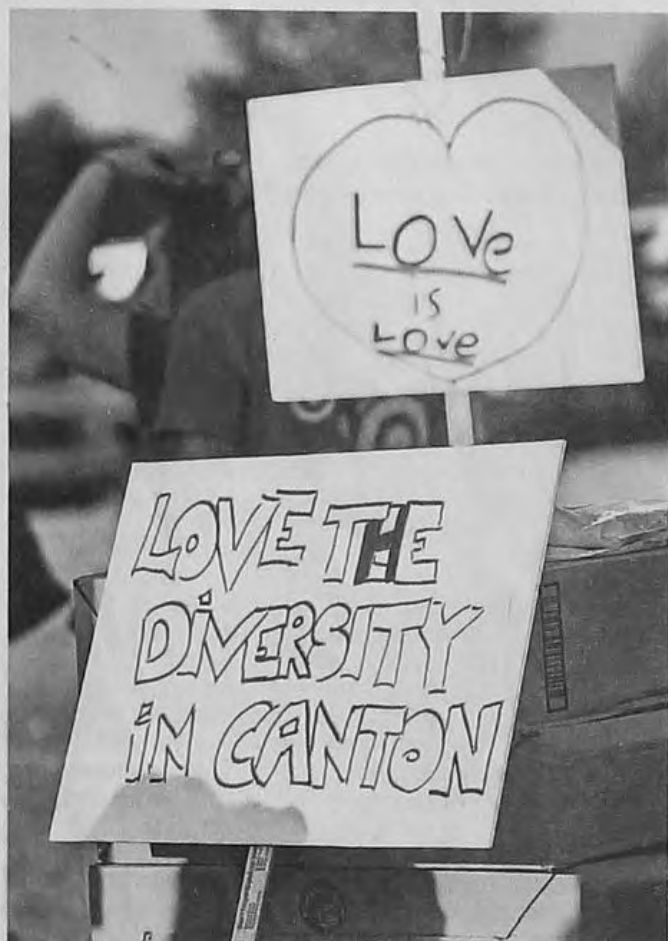 LOVe
is
Love
LOVE THE
DiVERSITY
iN CANTON